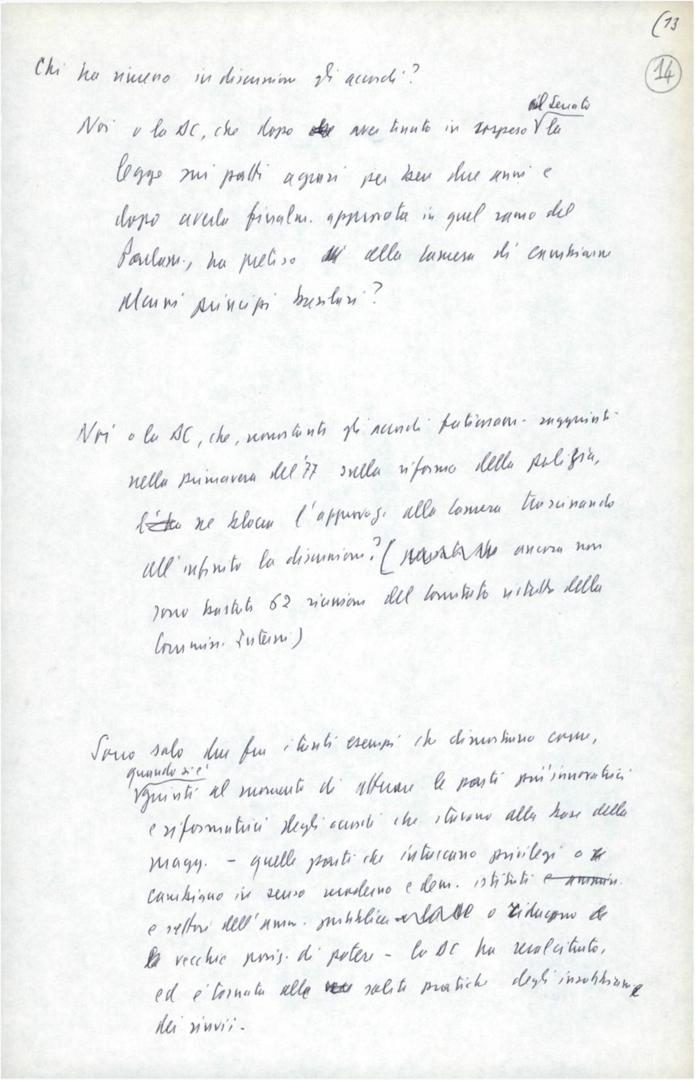 (13
14
Chi ha rimesso in discussione gli accordi?
Noi o la DC, che dopo aver tenuto in sospeso al Senato la
legge sui patti agrari per ben due anni e
dopo averla finalm. approvata in quel ramo del
Parlam., ha preteso alla Camera di cambiarne
alcuni principi basilari?
Noi o la DC, che, nonostante gli accordi faticosam. raggiunti
nella primavera del '77 sulla riforma della polizia,
ne blocca l'approvaz. alla Camera trascinando
all'infinito la discussione? ( ancora non
sono bastate 62 riunioni del Comitato ristretto della
Commiss. Interni)
Sono solo due fra i tanti esempi che dimostrano come,
quando si è
giunti al momento di attuare le parti più innovatrici
e riformatrici degli accordi che stavano alla base della
magg. - quelle parti che intaccano privilegi o
cambiano in senso moderno e dem. istituti e ammin.
e settori dell'amm. pubblica o riducono
le vecchie posiz. di potere - la DC ha recalcitrato,
ed è tornata alle solite pratiche degli insabbiam.
dei rinvii.